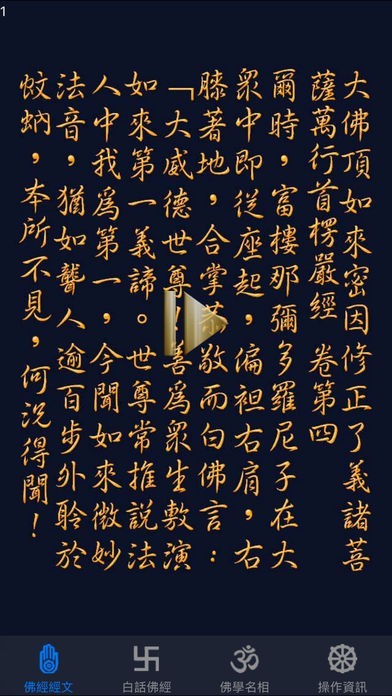 1
大佛頂如來密因修正了義諸菩
薩萬行首楞嚴經 卷第四
爾時，富樓那彌多羅尼子在大
衆中即從座起，偏袒右肩，右
膝著地，合掌恭敬而白佛言：
「大威德世尊！善爲衆生敷演
如來第一義諦。世尊常推說法
人中我爲第一，今聞如來微妙
法音，猶如聾人逾百步外聆於
蚊蚋，本所不見，何況得聞！
佛經經文
白話佛經
佛學名相
操作資訊